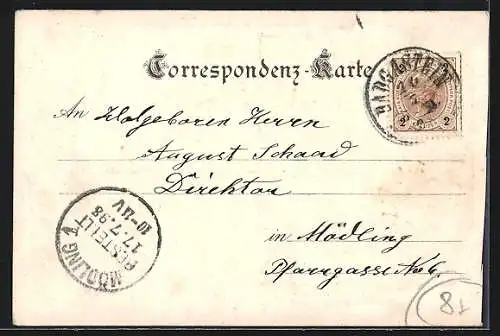 Correspondenz-Karte
BADGASTEIN
2 2
An Wolgeboren Herrn
August Schaad
Direktor
in Mödling
Pfarrgasse No 6.
MÖDLING 1
BESTELLT
17.7.98
10-11V
81